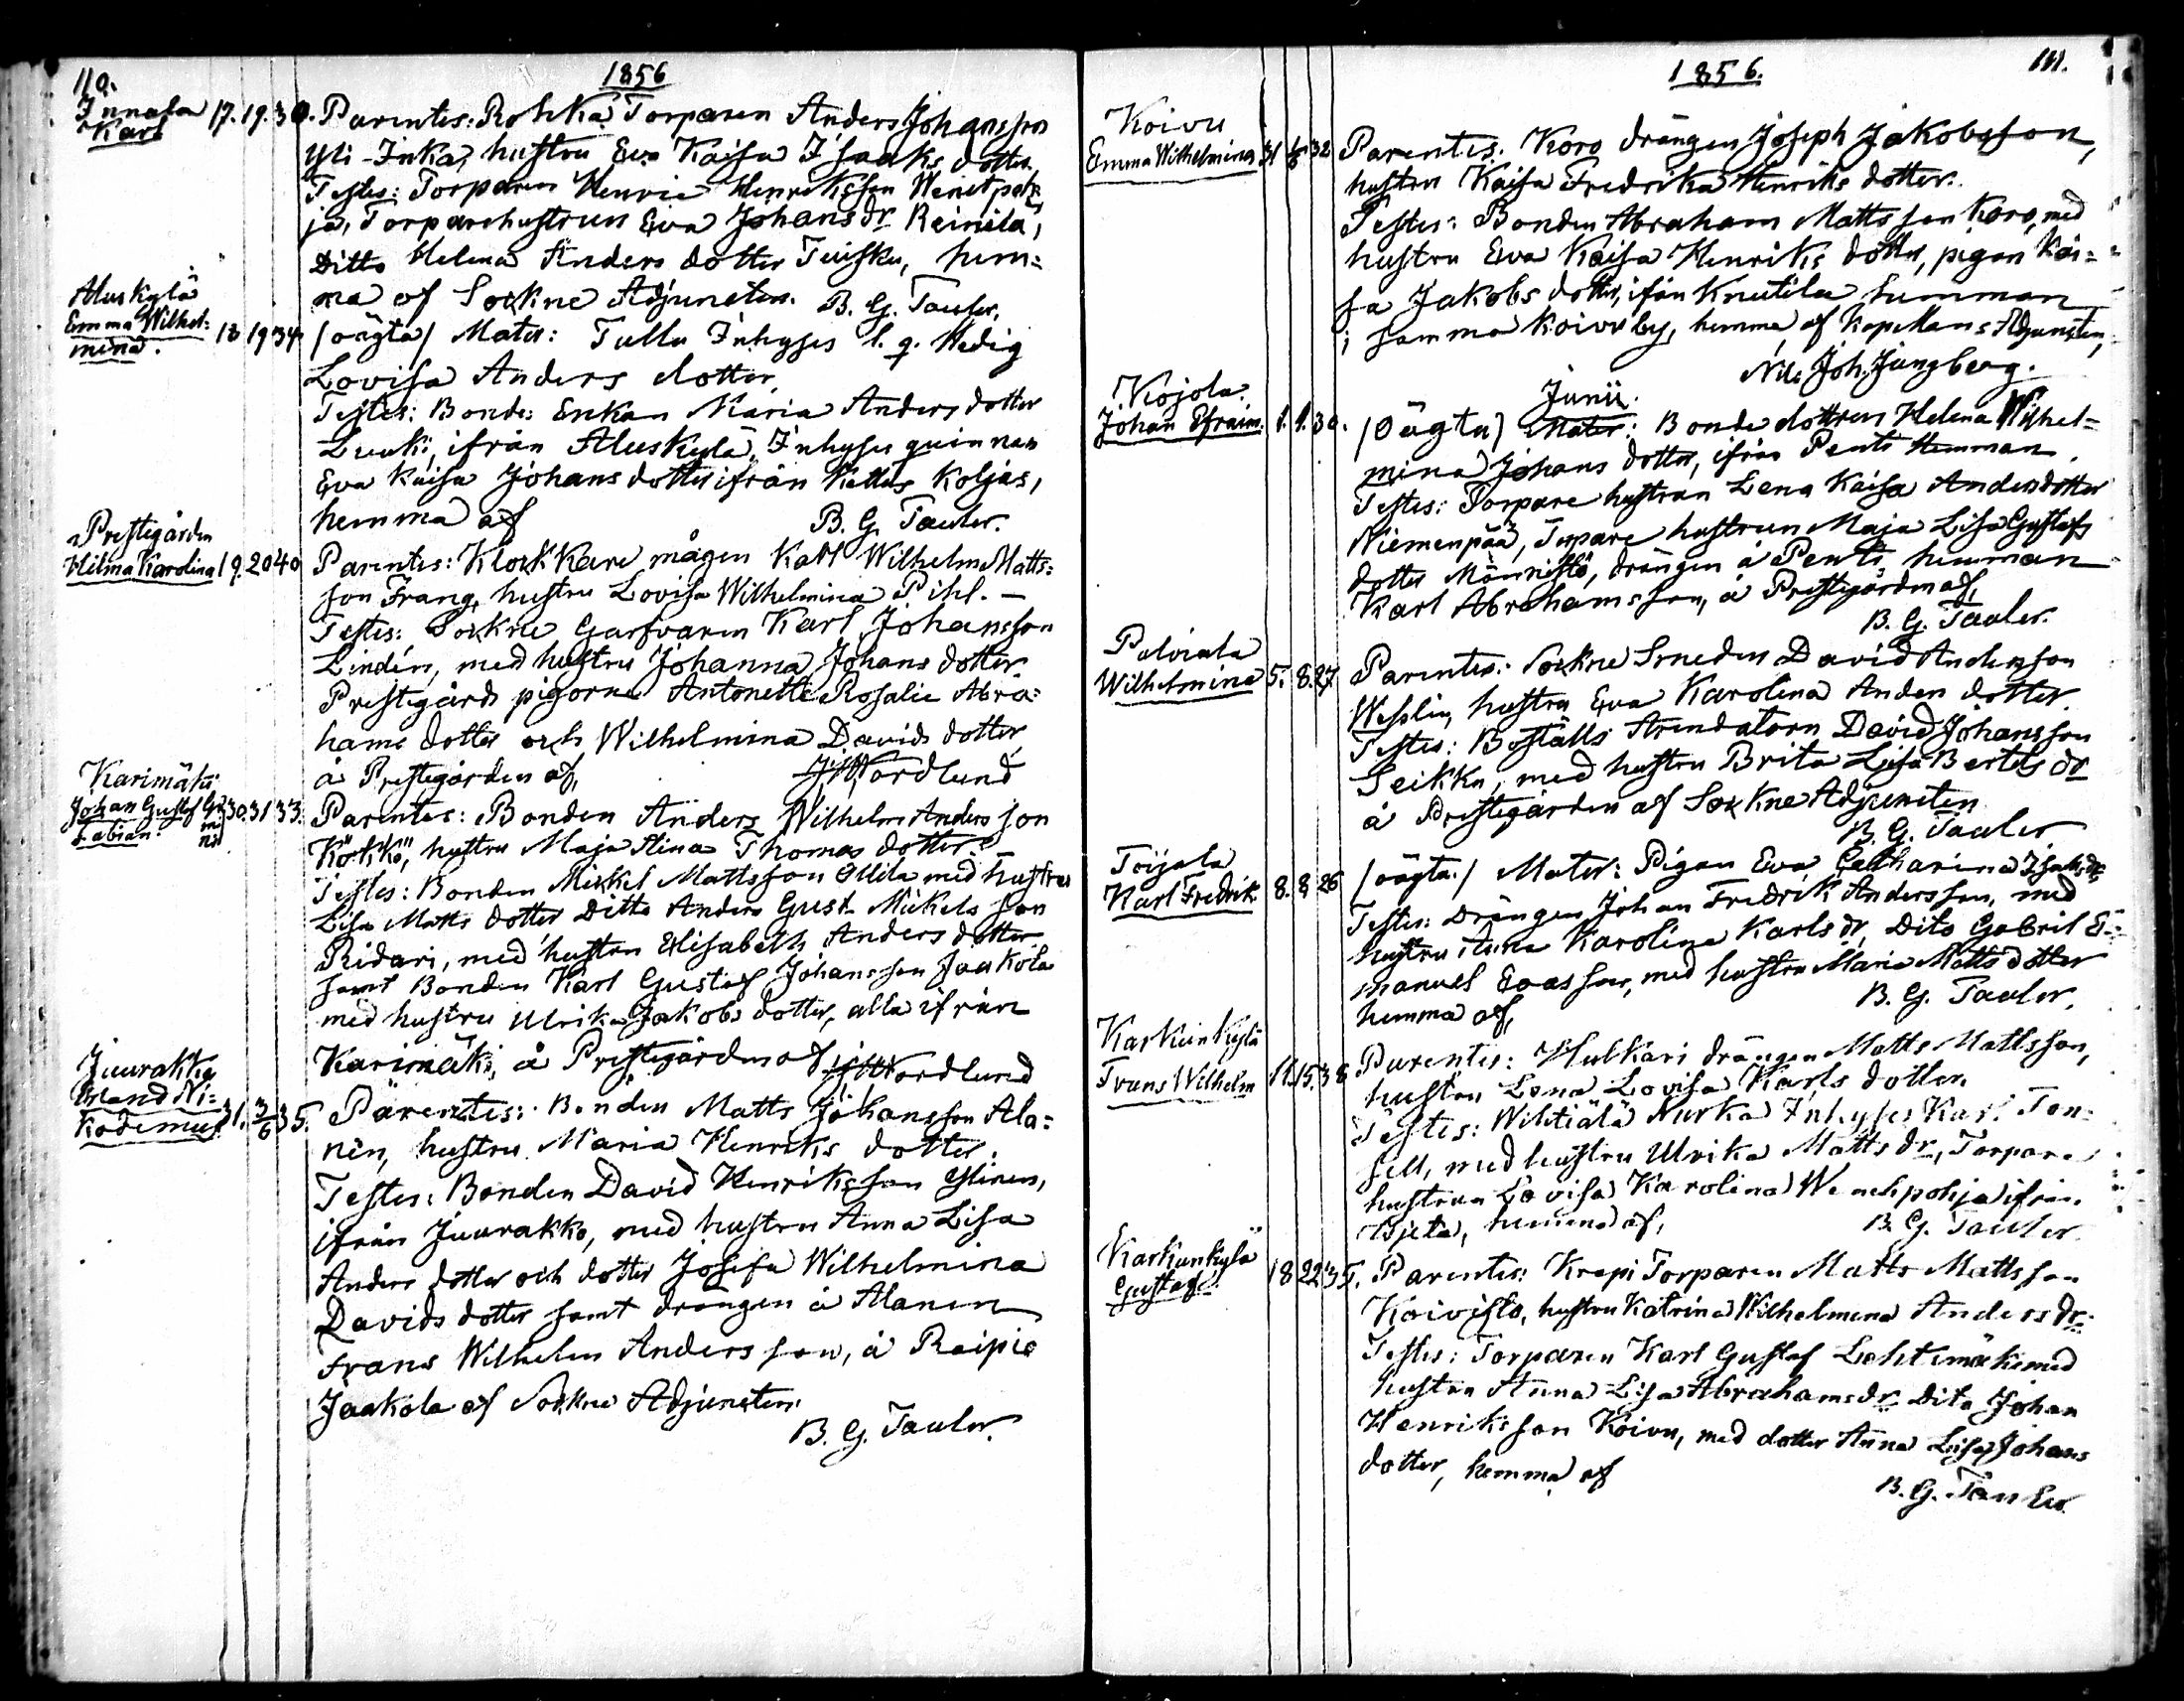 110.
1856
Innala
Karl
17. 19. 30.
Parentes: Rohka Torparen Anders Johansson
Yli-Inka, hustru Eva Kaisa Isaks dotter.
Testes: Torparen Henric Henriksson Wenetpoh-
ja, Torparehustrun Eva Johansdr Reinilä,
Ditto Helena Anders dotter Tuisku, hem=
ma af Sockne Adjuncten. B. G. Tauler.
Aluskylä
Emma Wilhel=
mina.
18 19 34
/oägta/ Mater: Tullu Inhyses l. q. Hedig
Lovisa Anders dotter
Testes: Bonde Enkan Maria Anders dotter
Luuki, ifrån Aluskylä, Inhyses quinnan
Eva Kaisa Johans dotter ifrån Kettus Koljas,
hemma af B. G. Tauler.
Prestegården
Hilma Karolina
19. 20 40
Parentes: Klockkare mågen Karl Wilhelm Matts=
son Frang, hustru Lovisa Wilhelmina Pihl. —
Testes: Sockne Garfvaren Karl Johansson
Lindén, med hustru Johanna Johans dotter
Prestegårds pigorna Antonette Rosalie Abra=
hams dotter och Wilhelmina Davids dotter
å Prestegården af, Nordlund
Karimäki
Johan Gustaf
Fabian.
30 31 33.
Parentes: Bonden Anders Wilhelm Andersson
Kökkö, hustru Maja Stina Thomas dotter.
Testes: Bonden Mickel Mattsson Ollila med hustru
Lisa Matts dotter Ditto Anders Gust. Mickels son
Ridari, med hustru Elisabeth Anders dotter
samt Bonden Karl Gustaf Johansson Jaakola
med hustru Ulrika Jakobs dotter, alla ifrån
Karimäki, å Prestegården af Nordlund
Juurakko
Erland Ni=
kodemus
31. 3/6 35.
Parentes: Bonden Matts Johansson Ala=
nen, hustru Maria Henriks dotter.
Testes: Bonden David Henriksson Ylinen,
ifrån Juurakko, med hustru Anna Lisa
Anders dotter och dotter Josefa Wilhelmina
Davids dotter samt drängen å Alanen
Frans Wilhelm Andersson, å Raipio
Jaakola af Sockne Adjuncten
B. G. Tauler.
1856.
111.
Koivu
Emma Wilhelmina
31 1/6 32
Parentes. Koro drängen Joseph Jakobsson,
hustru Kaisa Fredrika Henriks dotter.
Testes: Bonden Abraham Mattsson Koro, med
hustru Eva Kaisa Henriks dotter, pigan Kai=
sa Jakobs dotter, ifrån Knutila hemman
i samma Koivu by, hemma af Kapellans Adjuncten,
Nils Joh. Jungberg.
Junii.
Kojola.
Johan Efraim.
1. 1. 30.
/Oägta/ Mater: Bonde dottren Helena Wilhel=
mina Johans dotter, ifrån Penti Hemman.
Testes: Torpare hustrun Lena Kaisa Andersdotter
Niemenpää, Torpare hustrun Maja Lisa Gustafs
dotter Männistö, drängen å Penti hemman
Karl Abrahamsson, å Prestegården af,
B. G. Tauler.
Palviala
Wilhelmina
5. 8. 27
Parentes: Sockne Smeden David Andersson
Wesslin, hustru Eva Karolina Anders dotter.
Testes: Boställs Arendatorn David Johansson
Seikku, med hustru Brita Lisa Bertels dr
å Prestegården af Sockne Adjuncten
B. G. Tauler
Toijala
Karl Fredrik
8. 8 26
/oägta./ Mater: Pigan Eva Catharina Isaks dr.
Testes: Drängen Johan Fredrik Andersson, med
hustru Stina Karolina Karls dr, Dito Gabriel E=
manuel Evasson, med hustru Maria Matts dotter
hemma af, B. G. Tauler.
Karkunkylä
Frans Wilhelm
11. 15. 38
Parentes: Hulkari drängen Matts Mattsson,
hustru Lena Lovisa Karls dotter.
Testes: Wihtiälä Nurka Inhyses Karl Ton=
sell, med hustru Ulrika Matts dr, Torpare
hustrun Lovisa Karolina Wenehpohja ifrån
hemma af, B. G. Tauler
Karkunkylä
Gustaf.
18 22 35.
Parentes: Krapi Torparen Matts Mattsson
Koivisto, hustru Katrina Wilhelmina Anders dr.
Testes: Torparen Karl Gustaf Lehtimäki med
hustru Anna Lisa Abrahamsdr Dito Johan
Henriksson Koivu, med dotter Anna Lisa Johans
dotter, hemma af
B. G. Tauler.